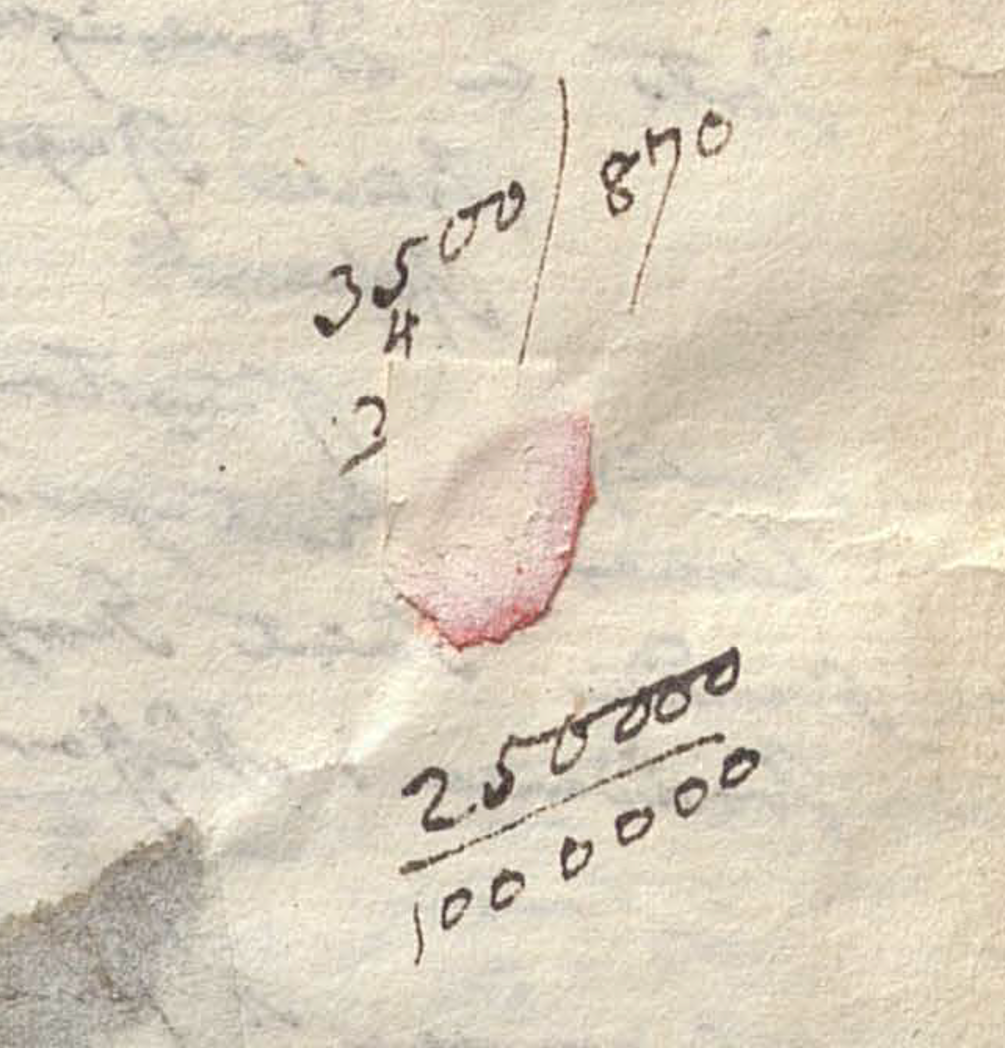 3500 / 870
4
3
250000
1000000